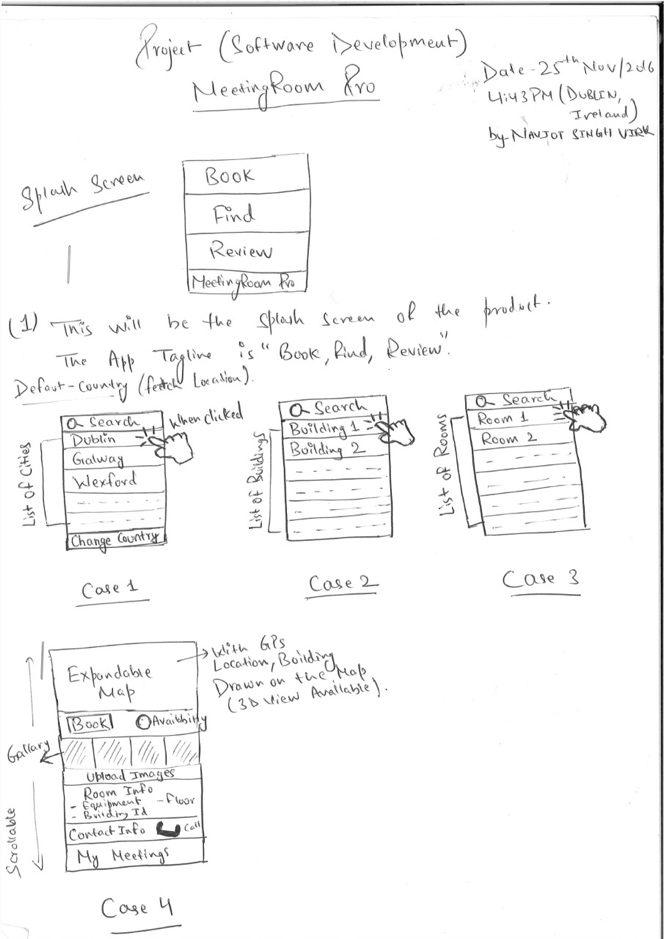 Project (Software Development)
MeetingRoom Pro
Date-25th Nov/2016
4:43PM (DUBLIN,
Ireland)
by-NAVJOT SINGH VIRK
Splash Screen
Book
Find
Review
MeetingRoom Pro
(1) This will be the splash screen of the product.
The App Tagline is "Book, Find, Review".
Defaut-Country (fetch Location).
Search
Dublin
Galway
Wexford
Change Country
List of Cities
When clicked
Case 1
Search
Building 1
Building 2
List of Buildings
Case 2
Search
Room 1
Room 2
List of Rooms
Case 3
Expandable
Map
With GPs
Location, Building
Drawn on the Map
(3D View Available).
Book
Availibility
Gallary
Upload Images
Room Info
- Equipment - Floor
- Building Id
Contact Info Call
My Meetings
Scrollable
Case 4